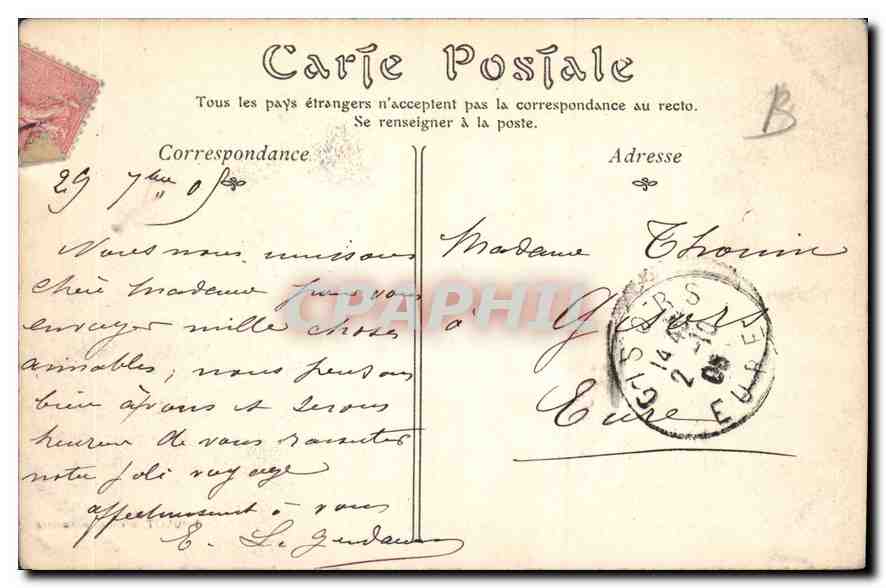 Carte Postale
Tous les pays étrangers n'acceptent pas la correspondance au recto.
Se renseigner à la poste.
B
Correspondance
29 7bre 05
Nous nous unissons
chère Madame pour vous
envoyer mille choses
aimables, nous pensons
bien à vous et serons
heureux de vous raconter
notre joli voyage
affectueusement à vous
E. Le
Adresse
Madame Thonin
à Gisors
Eure
GISORS
14
2 -10
05
EURE
CPAPHIL